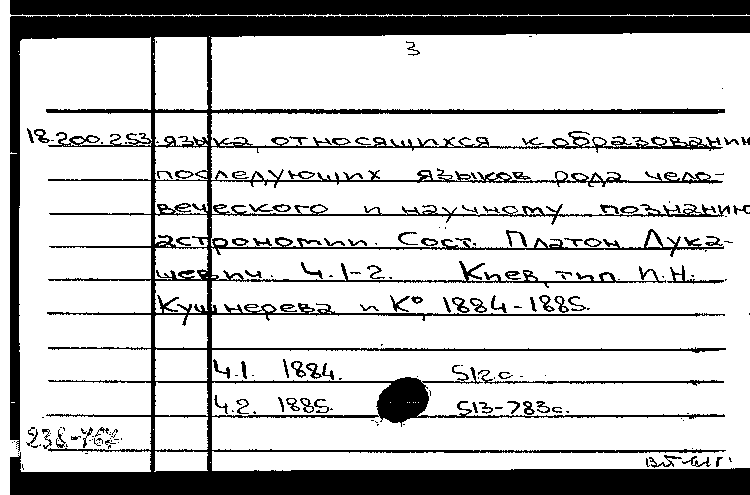 3
18.200.253 языка, относящихся к образованию
последующих языков рода чело-
веческого и научному познанию
астрономии. Сост. Платон Лука-
шевич. Ч.1-2. Киев, тип. И.Н.
Кушнерева и К°, 1884-1885.
Ч.1. 1884. 512с.
Ч.2. 1885. 513-783с.
238-767